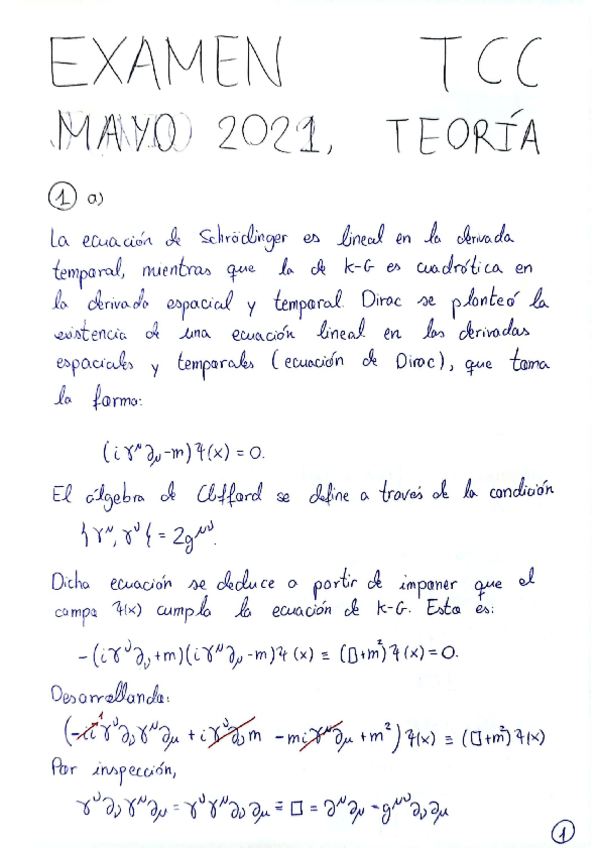 EXAMEN TCC
MAYO 2021, TEORÍA
① a)
La ecuación de Schrödinger es lineal en la derivada
temporal, mientras que la de K-G es cuadrática en
la derivada espacial y temporal. Dirac se planteó la
existencia de una ecuación lineal en las derivadas
espaciales y temporales (ecuación de Dirac), que toma
la forma:
(iγ^μ ∂_μ - m) Ψ(x) = 0.
El álgebra de Clifford se define a través de la condición
{γ^μ, γ^ν} = 2g^{μν}.
Dicha ecuación se deduce a partir de imponer que el
campo Ψ(x) cumpla la ecuación de K-G. Esta es:
-(iγ^ν ∂_ν + m)(iγ^μ ∂_μ - m) Ψ(x) ≡ (□ + m²) Ψ(x) = 0.
Desarrollando:
(-ii γ^ν ∂_ν γ^μ ∂_μ + iγ^ν ∂_ν m - miγ^μ ∂_μ + m²) Ψ(x) ≡ (□ + m²) Ψ(x)
Por inspección,
γ^ν ∂_ν γ^μ ∂_μ = γ^ν γ^μ ∂_ν ∂_μ ≡ □ = ∂^μ ∂_μ = g^{μν} ∂_ν ∂_μ
①